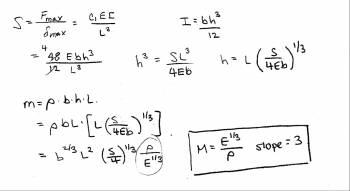 S = F_max / δ_max = C₁EI / L³     I = bh³ / 12
= ⁴4̶8̶ Ebh³ / 1̶2̶ L³     h³ = SL³ / 4Eb     h = L (S / 4Eb)^1/3
m = ρ·b·h·L.
= ρbL·[L(S / 4Eb)^1/3]
= b^2/3 L² (S/4)^1/3 ρ / E^1/3
M = E^1/3 / ρ   slope = 3